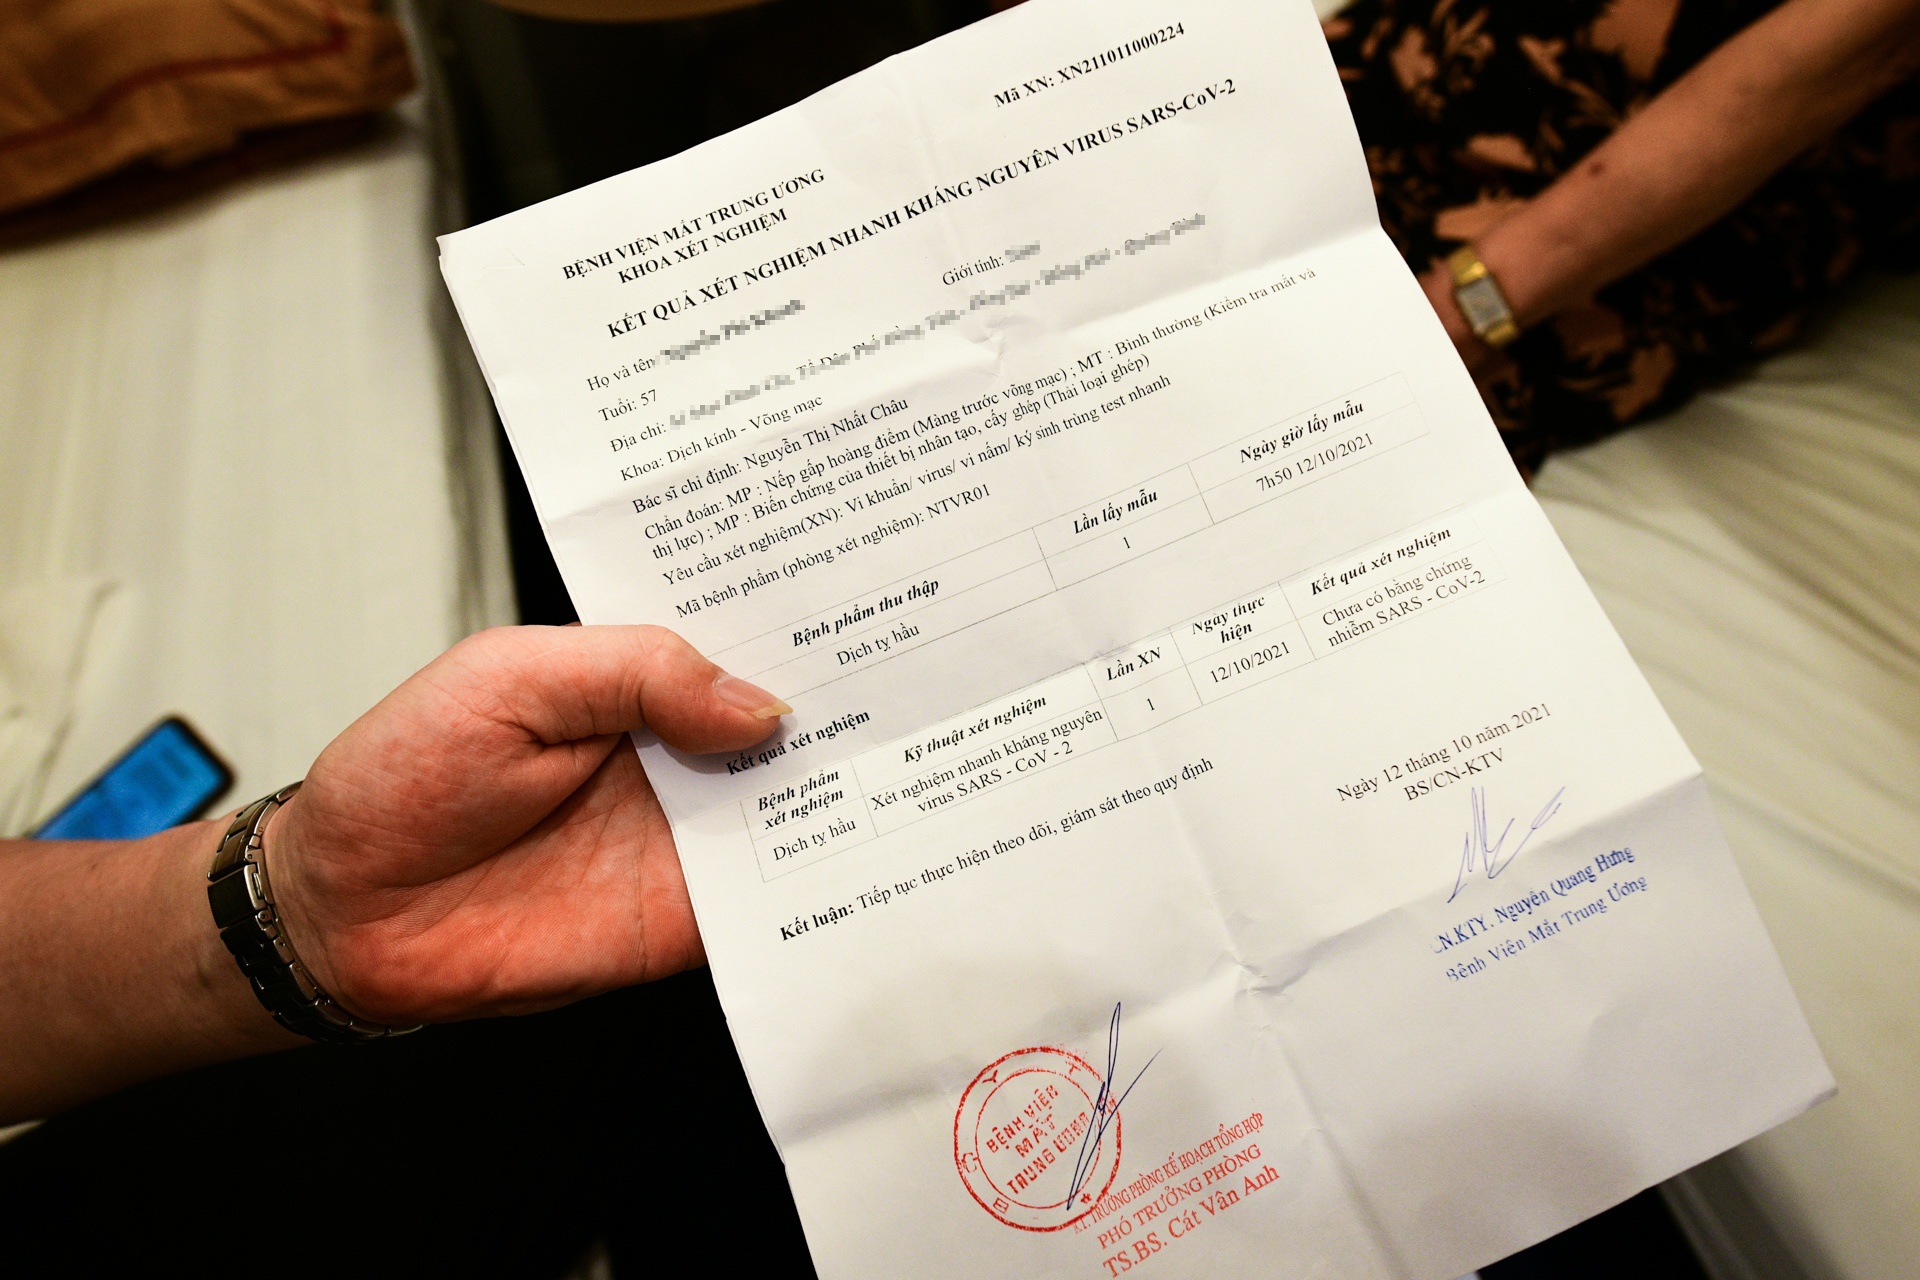 Mã XN: XN211011000224
BỆNH VIỆN MẮT TRUNG ƯƠNG
KHOA XÉT NGHIỆM
KẾT QUẢ XÉT NGHIỆM NHANH KHÁNG NGUYÊN VIRUS SARS-CoV-2
Họ và tên
Giới tính:
Tuổi: 57
Địa chỉ:
Khoa: Dịch kính - Võng mạc
Bác sĩ chỉ định: Nguyễn Thị Nhất Châu
Chẩn đoán: MP : Nếp gấp hoàng điểm (Màng trước võng mạc) ; MT : Bình thường (Kiểm tra mắt và
thị lực) ; MP : Biến chứng của thiết bị nhân tạo, cấy ghép (Thải loại ghép)
Yêu cầu xét nghiệm(XN): Vi khuẩn/ virus/ vi nấm/ ký sinh trùng test nhanh
Mã bệnh phẩm (phòng xét nghiệm): NTVR01
Bệnh phẩm thu thập Lần lấy mẫu Ngày giờ lấy mẫu
Dịch tỵ hầu 1 7h50 12/10/2021
Kết quả xét nghiệm
Bệnh phẩm xét nghiệm Kỹ thuật xét nghiệm Lần XN Ngày thực hiện Kết quả xét nghiệm
Dịch tỵ hầu Xét nghiệm nhanh kháng nguyên virus SARS - CoV - 2 1 12/10/2021 Chưa có bằng chứng nhiễm SARS - CoV-2
Kết luận: Tiếp tục thực hiện theo dõi, giám sát theo quy định
Ngày 12 tháng 10 năm 2021
BS/CN-KTV
CN.KTY. Nguyễn Quang Hưng
Bệnh Viện Mắt Trung Ương
BỘ Y TẾ
BỆNH VIỆN
MẮT
TRUNG ƯƠNG
KT. TRƯỞNG PHÒNG KẾ HOẠCH TỔNG HỢP
PHÓ TRƯỞNG PHÒNG
TS.BS. Cát Vân Anh